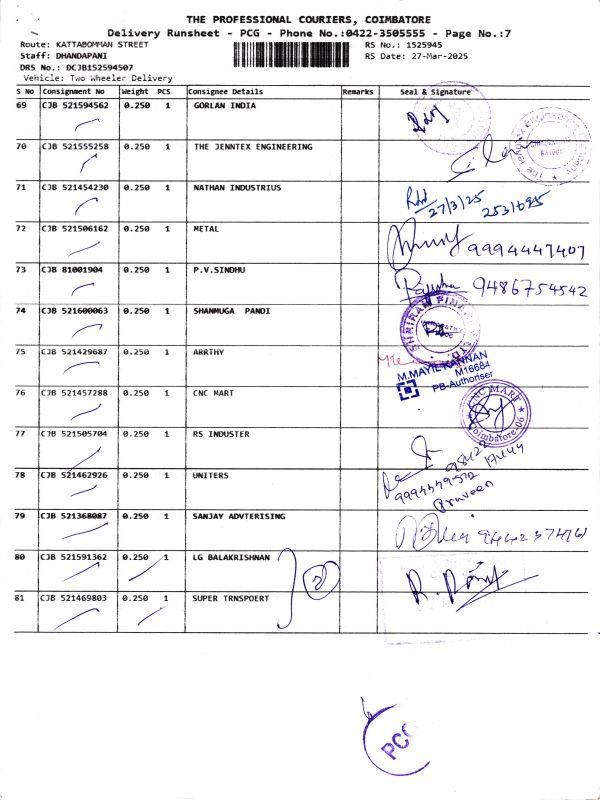 THE PROFESSIONAL COURIERS, COIMBATORE
Delivery Runsheet - PCG - Phone No.:0422-3505555 - Page No.:7
Route: KATTABOMMAN STREET RS No.: 1525945
Staff: DHANDAPANI RS Date: 27-Mar-2025
DRS No.: DCJB152594507
Vehicle: Two Wheeler Delivery
S No Consignment No Weight PCS Consignee Details Remarks Seal & Signature
69 CJB 521594562 0.250 1 GORLAN INDIA
70 CJB 521555258 0.250 1 THE JENNTEX ENGINEERING
71 CJB 521454230 0.250 1 NATHAN INDUSTRIUS
27/3/25
72 CJB 521506162 0.250 1 METAL
9994447407
73 CJB 81001904 0.250 1 P.V.SINDHU
9486754542
74 CJB 521600063 0.250 1 SHANMUGA PANDI
SHRIRAM FINANCE LTD
75 CJB 521429687 0.250 1 ARRTHY
M.MAYILKANNAN
M16684
PB-Authoriser
76 CJB 521457288 0.250 1 CNC MART
CNC MART
Coimbatore-06
77 CJB 521505704 0.250 1 RS INDUSTER
78 CJB 521462926 0.250 1 UNITERS
Praveen
79 CJB 521368087 0.250 1 SANJAY ADVTERISING
80 CJB 521591362 0.250 1 LG BALAKRISHNAN
81 CJB 521469803 0.250 1 SUPER TRNSPOERT
PCG